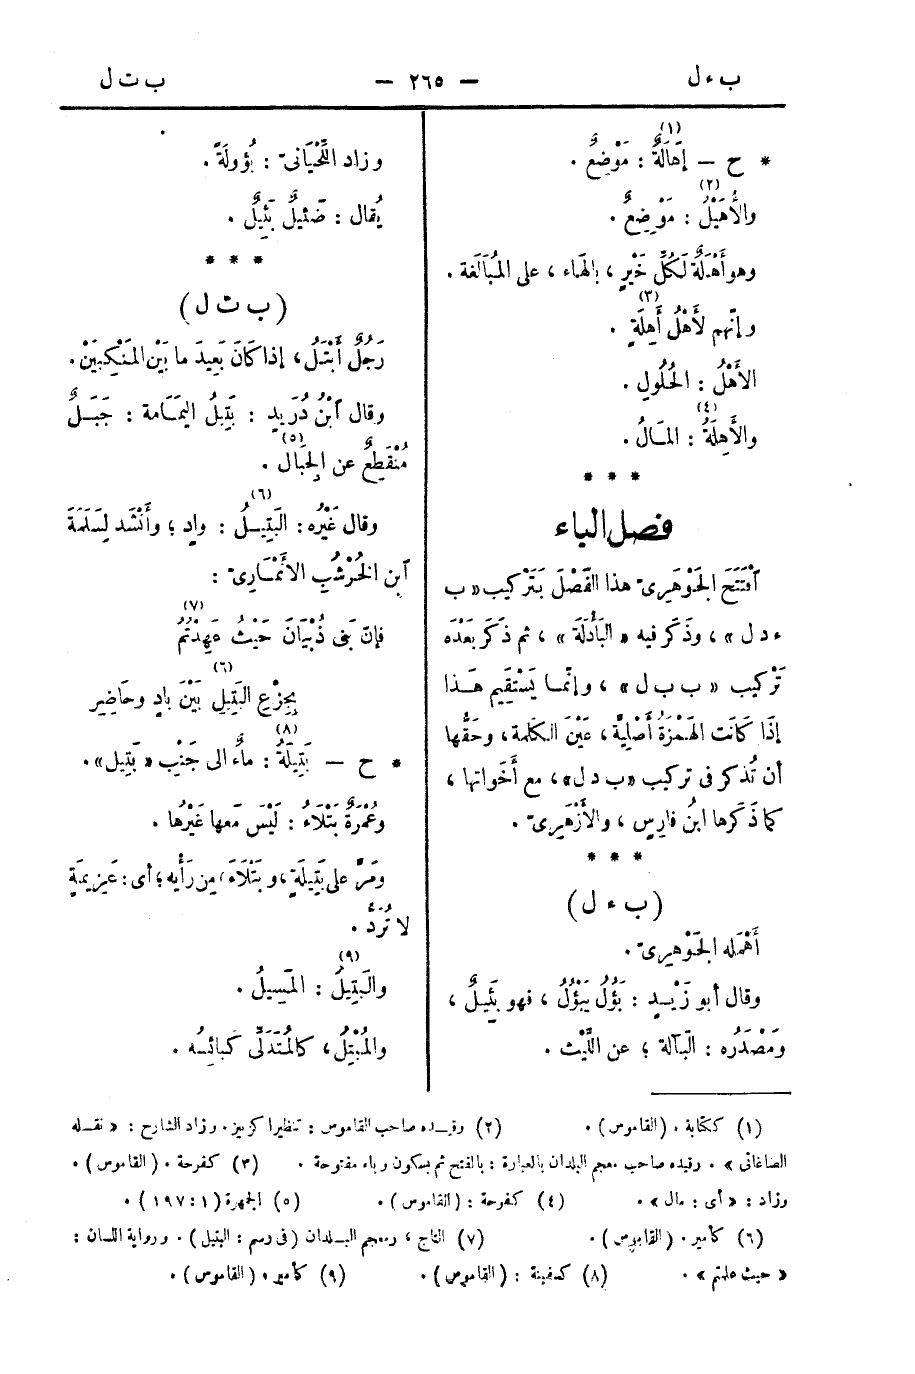 ب ء ل — ٢٦٥ — ب ت ل
* ح — إهَالَةُ (١) : مَوْضِعٌ .
والأُهَيْلُ (٢) : مَوْضِعٌ .
وهو أَهْلَةٌ لكُلِّ خَيْرٍ ، بالهاء ، على المُبَالَغة .
وإنّهم لَأَهْلُ أَهِلَةٍ (٣) .
الأَهْلُ : الحُلُولِ .
والأَهِلَةُ (٤) : المَالُ .
* * *
فصل الباء
اَفْتَتَحَ الجَوْهَرِىّ هذا الفَصْلَ بتَرْكيب « ب
ء د ل » ، وذَكَر فيه « البَأْدَلَة » ، ثم ذَكَر بَعْدَه
تَرْكيب « ب ب ل » ، وإنّما يَسْتَقِيم هَذا
إذَا كانَت الهَمْزَةُ أَصْلِيَّةً ، عَيْنَ الكلمة ، وحَقُّها
أن تُذكر فى تركيب « ب د ل » ، مع أَخَواتها ،
كما ذَكَرها ابنُ فارِس ، والأَزْهَرِىّ .
* * *
(ب ء ل)
أَهْمَله الجَوْهرِىّ .
وقال أَبو زَيْـدٍ : بَؤُلَ يَبْؤُلُ ، فهو بَئِيلٌ ،
ومَصْدَرُه : البَآلَة ؛ عن اللَّيْث .
وزاد اللِّحْيَانىّ : بُؤولَةً .
يُقال : ضَئِيلٌ بَئِيلٌ .
* * *
(ب ت ل)
رَجُلٌ أَبْتَلُ ، إذا كانَ بَعِيدَ ما بَيْن المَنْكِبَيْن .
وقال اَبْنُ دُرَيدٍ : بَتِيلُ اليَمَامة : جَبَلٌ
مُنْقَطِعٌ عن الجِبَال (٥) .
وقال غَيْرُه : البَتِيـلُ (٦) : وادٍ ؛ وأَنْشَد لِسَلَمَةَ
اَبن الخُرْشُبِ الأَنْمَـارِىّ :
فإنّ بَنِى ذُبْيَانَ حَيْثُ عَهِدْتُمُ (٧)
بِجِزْعِ البَتِيلِ (٦) بَيْنَ بادٍ وحَاضِرِ
* ح — بَتِيلَةُ (٨) : ماءٌ الى جَنْبِ « بَتِيل » .
وعُمْرَةٌ بَتْلَاءُ : لَيْسَ مَعها غَيْرُها .
ومَرَّ على بَتِيلَةٍ ، وبَتْلَاءَ ، مِن رَأْيه ؛ أى : عَزِيمَةٍ
لا تُرَدّ .
والبَتِيلُ (٩) : المَسِيلُ .
والمُبْتِلُ ، كالمُتَدَلَّى كَبائِسُه .
(١) ككتابة . (القاموس) . (٢) وقيـده صاحب القاموس : تنظيرا كزبير . وزاد الشارح : « نقـله
الصاغانى » . وقيده صاحب معجم البلدان بالعبارة : بالفتح ثم بسكون وياء مفتوحة . (٣) كفرحة . (القاموس) .
وزاد : « أى : مال » . (٤) كفرحة : (القاموس) . (٥) الجمهرة (١ : ١٩٧) .
(٦) كأمير . (القاموس) . (٧) التاج ، ومعجم البـلدان (فى رسم : البتيل) . ورواية اللسان :
« حيث علمتم » . (٨) كسفينة : (القاموس) . (٩) كأمير . (القاموس) .